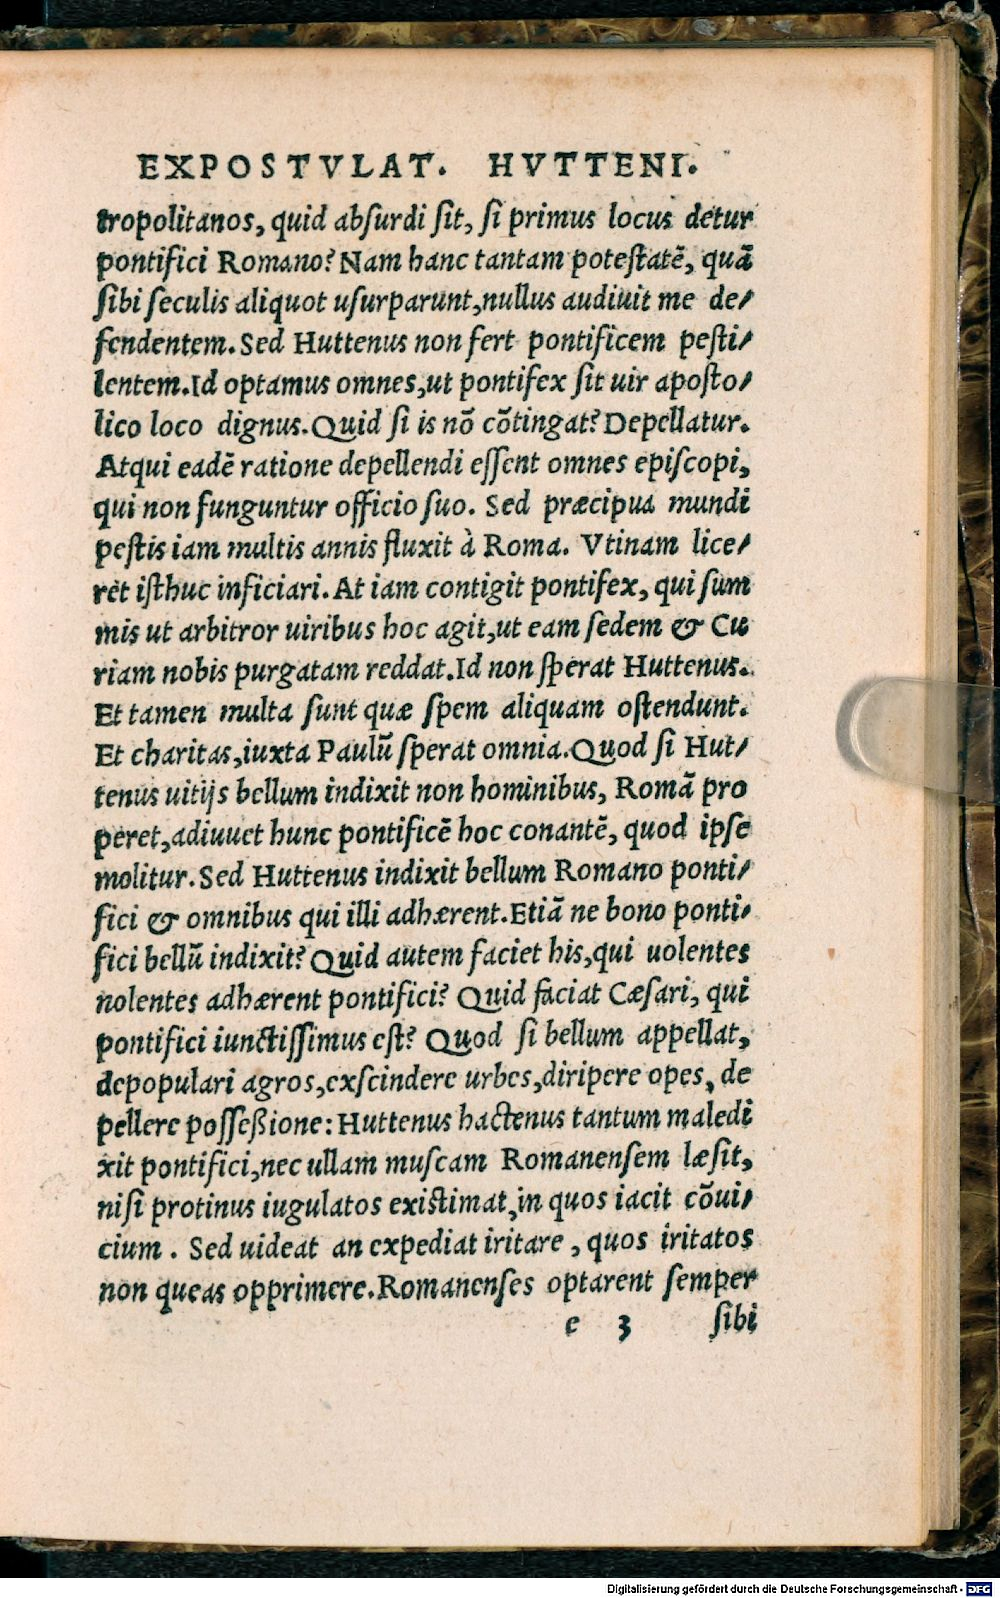 EXPOSTVLAT. HVTTENI.
tropolitanos, quid absurdi sit, si primus locus detur
pontifici Romano? Nam hanc tantam potestatē, quā
sibi seculis aliquot usurparunt, nullus audiuit me de/
fendentem. Sed Huttenus non fert pontificem pesti/
lentem. Id optamus omnes, ut pontifex sit uir aposto/
lico loco dignus. Quid si is nō cōtingat? Depellatur.
Atqui eadē ratione depellendi essent omnes episcopi,
qui non funguntur officio suo. Sed præcipua mundi
pestis iam multis annis fluxit à Roma. Vtinam lice/
ret isthuc inficiari. At iam contigit pontifex, qui sum
mis ut arbitror uiribus hoc agit, ut eam sedem & Cu
riam nobis purgatam reddat. Id non sperat Huttenus.
Et tamen multa sunt quæ spem aliquam ostendunt.
Et charitas, iuxta Paulū sperat omnia. Quod si Hut/
tenus uitijs bellum indixit non hominibus, Romā pro
peret, adiuuet hunc pontificē hoc conantē, quod ipse
molitur. Sed Huttenus indixit bellum Romano ponti/
fici & omnibus qui illi adhærent. Etiā ne bono ponti/
fici bellū indixit? Quid autem faciet his, qui uolentes
nolentes adhærent pontifici? Quid faciat Cæsari, qui
pontifici iunctissimus est? Quod si bellum appellat,
depopulari agros, exscindere urbes, diripere opes, de
pellere possessione: Huttenus hactenus tantum maledi
xit pontifici, nec ullam muscam Romanensem læsit,
nisi protinus iugulatos existimat, in quos iacit cōui/
cium. Sed uideat an expediat iritare, quos iritatos
non queas opprimere. Romanenses optarent semper
e 3 sibi
Digitalisierung gefördert durch die Deutsche Forschungsgemeinschaft - DFG